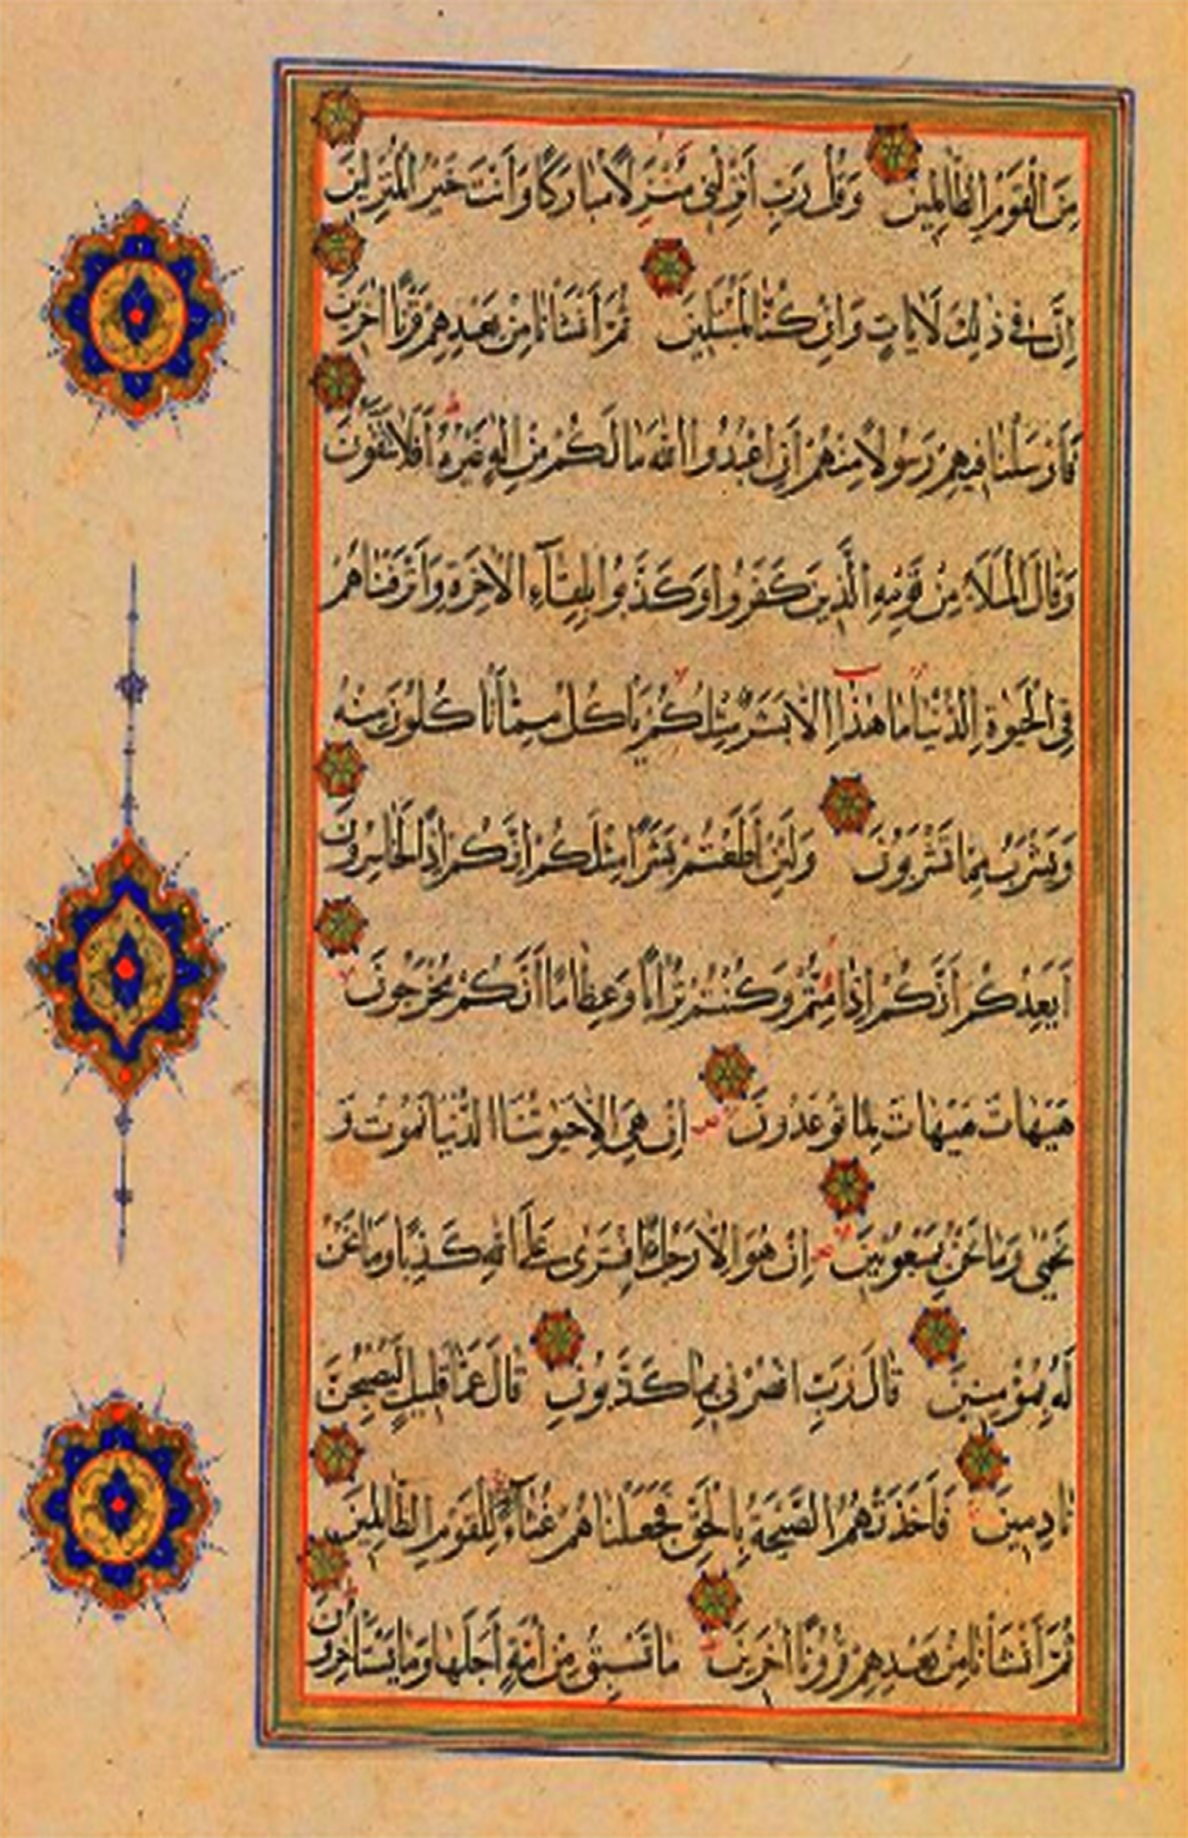 مِنَ الْقَوْمِ الظَّالِمِينَ وَقُلْ رَبِّ أَنْزِلْنِي مُنْزَلًا مُبَارَكًا وَأَنْتَ خَيْرُ الْمُنْزِلِينَ
إِنَّ فِي ذٰلِكَ لَاٰيَاتٍ وَإِنْ كُنَّا لَمُبْتَلِينَ ثُمَّ أَنْشَأْنَا مِنْ بَعْدِهِمْ قَرْنًا اٰخَرِينَ
فَأَرْسَلْنَا فِيهِمْ رَسُولًا مِنْهُمْ أَنِ اعْبُدُوا اللهَ مَا لَكُمْ مِنْ إِلٰهٍ غَيْرُهُ أَفَلَا تَتَّقُونَ
وَقَالَ الْمَلَأُ مِنْ قَوْمِهِ الَّذِينَ كَفَرُوا وَكَذَّبُوا بِلِقَاءِ الْاٰخِرَةِ وَأَتْرَفْنَاهُمْ
فِي الْحَيٰوةِ الدُّنْيَا مَا هٰذَا إِلَّا بَشَرٌ مِثْلُكُمْ يَأْكُلُ مِمَّا تَأْكُلُونَ مِنْهُ
وَيَشْرَبُ مِمَّا تَشْرَبُونَ وَلَئِنْ أَطَعْتُمْ بَشَرًا مِثْلَكُمْ إِنَّكُمْ إِذًا لَخَاسِرُونَ
أَيَعِدُكُمْ أَنَّكُمْ إِذَا مِتُّمْ وَكُنْتُمْ تُرَابًا وَعِظَامًا أَنَّكُمْ مُخْرَجُونَ
هَيْهَاتَ هَيْهَاتَ لِمَا تُوعَدُونَ إِنْ هِيَ إِلَّا حَيَاتُنَا الدُّنْيَا نَمُوتُ وَ
نَحْيٰى وَمَا نَحْنُ بِمَبْعُوثِينَ إِنْ هُوَ إِلَّا رَجُلٌ افْتَرٰى عَلَى اللهِ كَذِبًا وَمَا نَحْنُ
لَهُ بِمُؤْمِنِينَ قَالَ رَبِّ انْصُرْنِي بِمَا كَذَّبُونِ قَالَ عَمَّا قَلِيلٍ لَيُصْبِحُنَّ
نَادِمِينَ فَأَخَذَتْهُمُ الصَّيْحَةُ بِالْحَقِّ فَجَعَلْنَاهُمْ غُثَاءً لِلْقَوْمِ الظَّالِمِينَ
ثُمَّ أَنْشَأْنَا مِنْ بَعْدِهِمْ قُرُونًا اٰخَرِينَ مَا تَسْبِقُ مِنْ أُمَّةٍ أَجَلَهَا وَمَا يَسْتَأْخِرُونَ